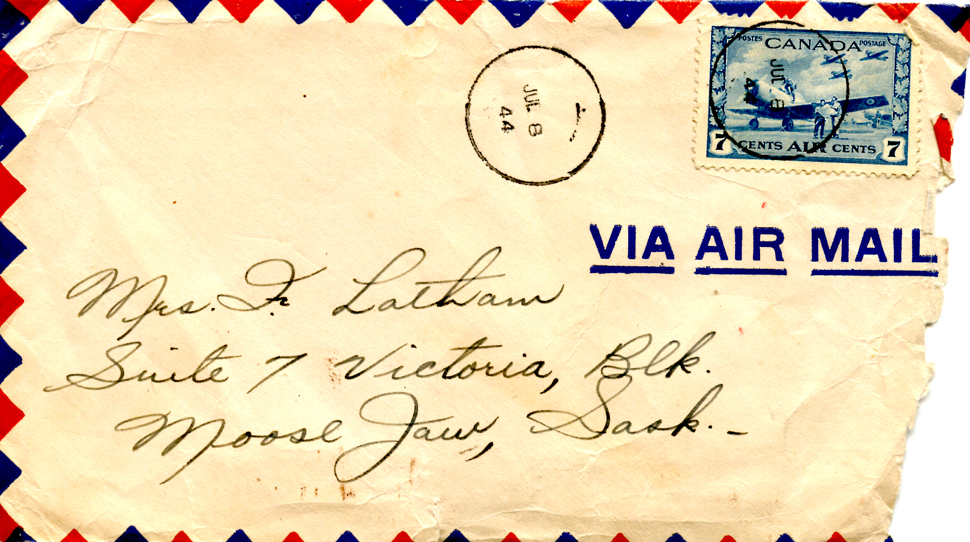 POSTES CANADA POSTAGE
7 CENTS AIR CENTS 7
JUL 8
44
JUL 8
44
VIA AIR MAIL
Mrs. F. Latham
Suite 7 Victoria, Blk.
Moose Jaw, Sask. -